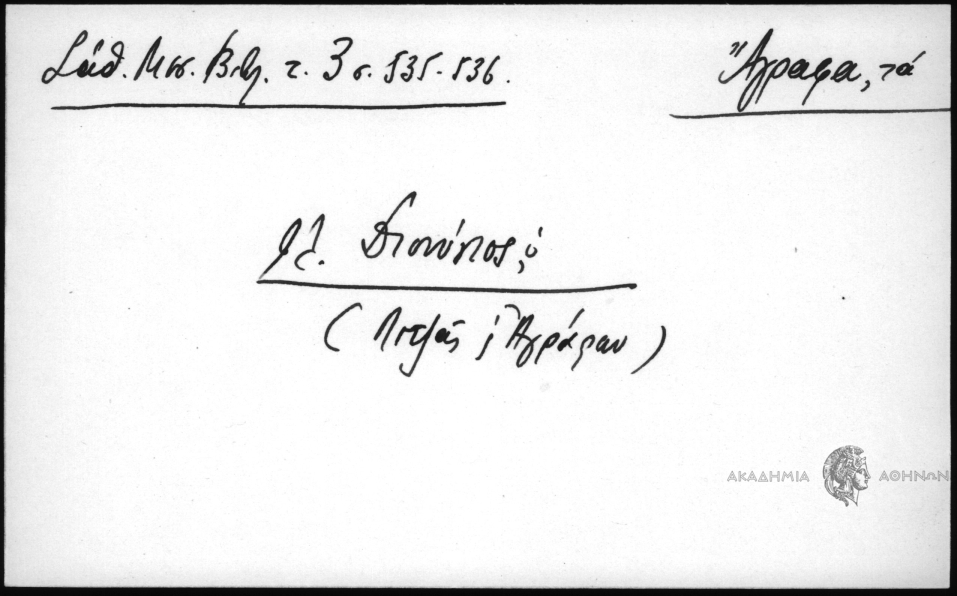 Σάθ. Μεσ. Βιβλ. τ. 3 σ. 535-536.
Ἄγραφα, τά
βλ. Διονύσιος, ὁ
( Λιτζᾶς ἤ Ἀγράφων )
ΑΚΑΔΗΜΙΑ ΑΘΗΝΩΝ